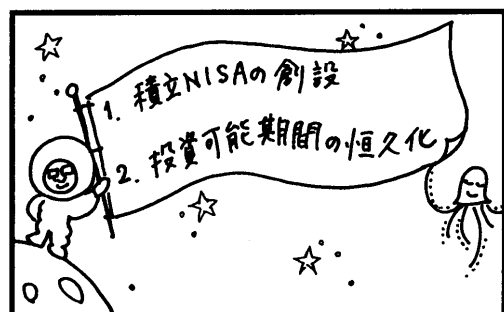 1. 積立NISAの創設
2. 投資可能期間の恒久化